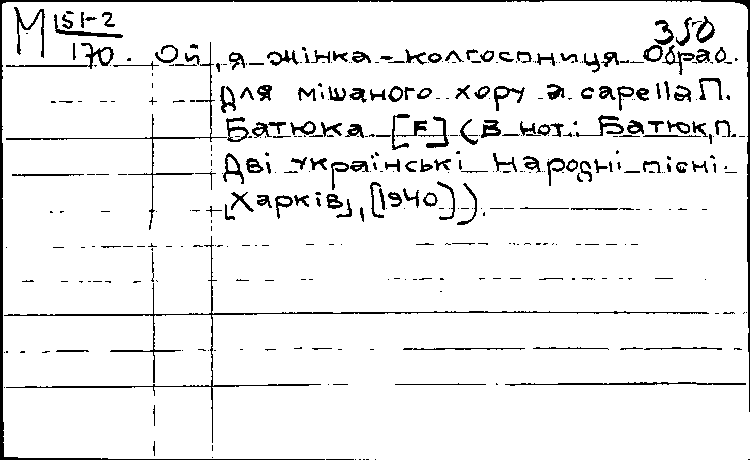 М 151-2 350
170. Ой, я жінка-колгоспниця Обраб.
для мішаного хору a capella П.
Батюка [F] (В нот.: Батюк, П.
Дві українські народні пісні.
[Харків], [1940]).